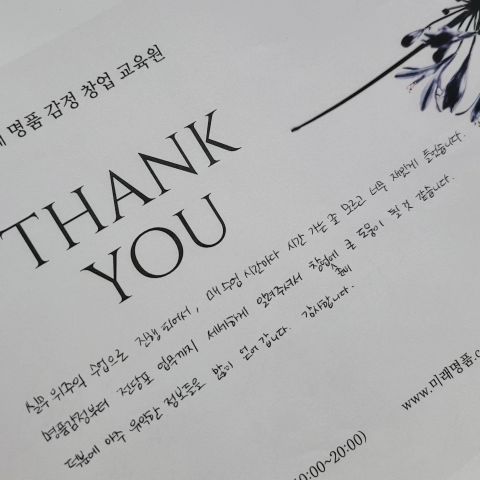 래 명품 감정 창업 교육원
THANK
YOU
실무위주의 수업으로 진행 되어서, 매 수업 시간마다 시간 가는 줄 모르고 너무 재밌게 들었습니다.
명품감정부터 전당포 업무까지 세세하게 알려주셔서 창업에 큰 도움이 될 것 같습니다.
덕분에 아주 유익한 정보들을 많이 얻어 갑니다. 감사합니다.
www.미래명품.c
0:00~20:00)